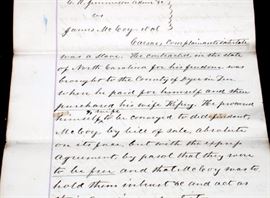 vs
James McCoy et al
Complainants intestate
was a slave. He contracted in the state
of North Carolina for his freedom was
brought to the County of Dyer in Ten
where he paid for himself and then
purchased his wife He procured
himself & wife to be conveyed to defendant,
McCoy, by bill of sale, absolute
on its face, but with the express
agreement, by parol that they were
to be free and that McCoy was to
hold them in trust &c and act as